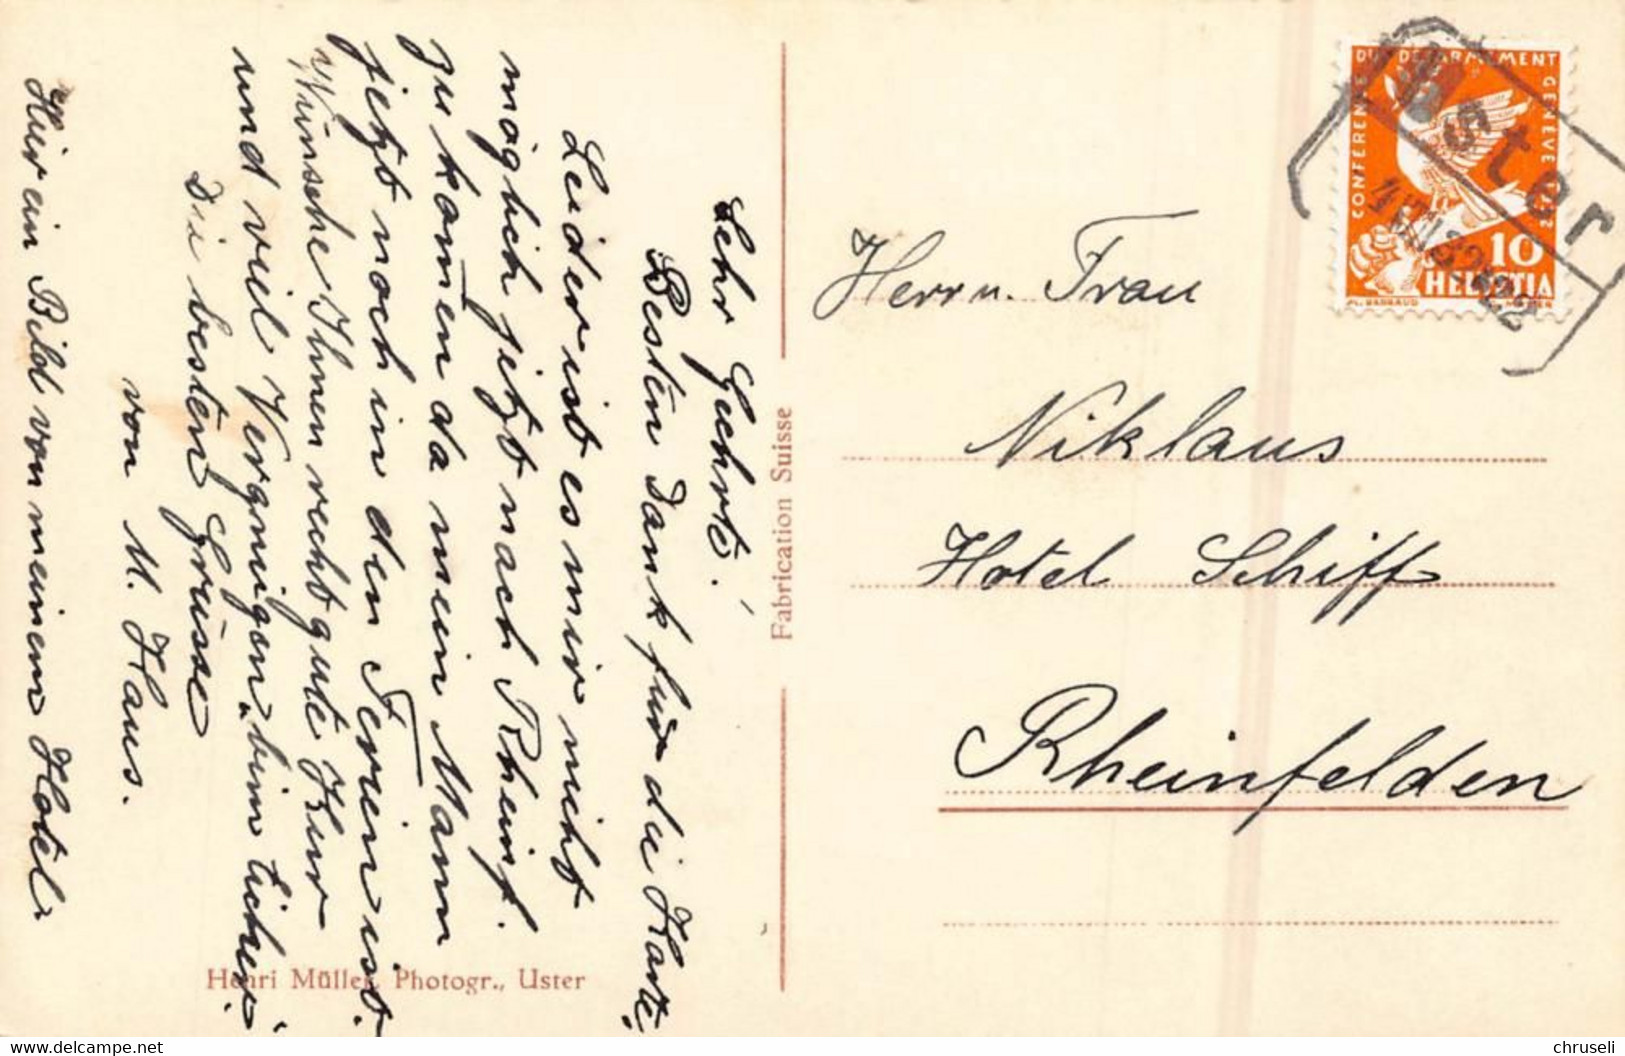 Sehr Geehrte!
Besten Dank für die Karte,
Leider ist es mir nicht
möglich jetzt nach Rheinf.
zu kom̄en da mein Mann
jetzt noch in den Ferien ist.
Wünsche Ihnen recht gute Kur
und viel Vergnügen „bim Eicher"
Die besten Grüsse
von M. Haus.
Hier ein Bild von meinem Hotel.
Fabrication Suisse
Henri Müller, Photogr., Uster
CONFERENCE DU DESARMEMENT GENEVE 1932
10
HELVETIA
Uster
Herr u. Frau
Niklaus
Hotel Schiff
Rheinfelden
chruseli